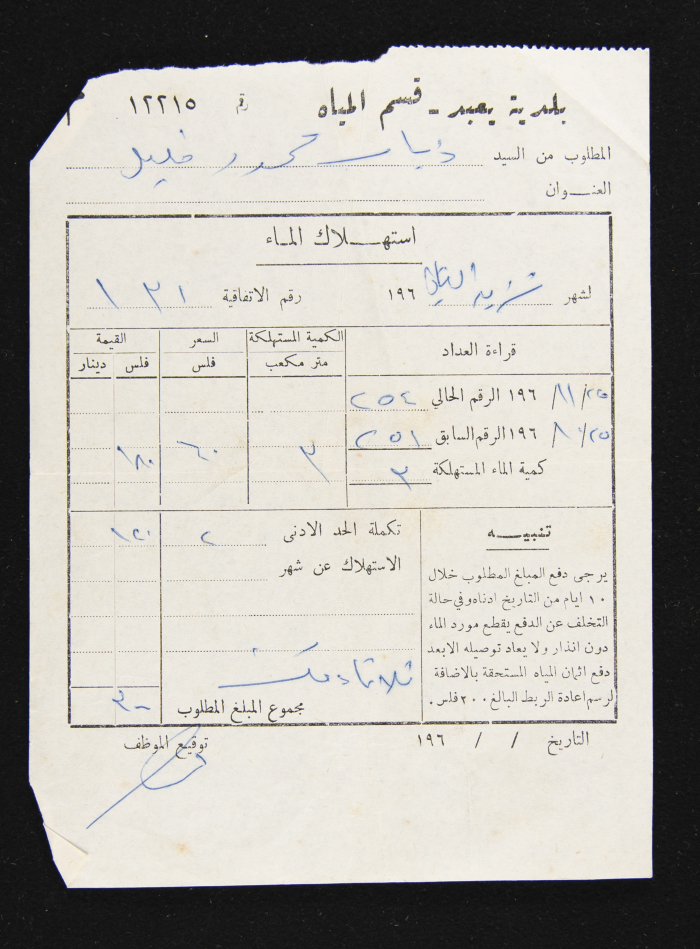 بلدية يعبد - قسم المياه رقم ١٢٢١٥
المطلوب من السيد ذياب محمود خليل
العنـــوان
استهـــلاك المـاء
لشهر تشرين الثاني ١٩٦ رقم الاتفاقية ١٣١
قراءة العداد الكمية المستهلكة السعر القيمة
متر مكعب فلس فلس دينار
٢٥/١١/ ١٩٦ الرقم الحالي ٢٥٤
٢٥/١٠/ ١٩٦ الرقم السابق ٢٥١
كمية الماء المستهلكة ٣ ٣ ٦٠ ١٨٠
تنبيـــه
يرجى دفع المبلغ المطلوب خلال
١٠ ايام من التاريخ ادناه وفي حالة
التخلف عن الدفع يقطع مورد الماء
دون انذار ولا يعاد توصيله الا بعد
دفع اثمان المياه المستحقة بالاضافة
لرسم اعادة الربط البالغ ٢٠٠ فلس .
تكملة الحد الادنى ٢ ١٢٠
الاستهلاك عن شهر
مجموع المبلغ المطلوب ٣٠٠
التاريخ / / ١٩٦ توقيع الموظف